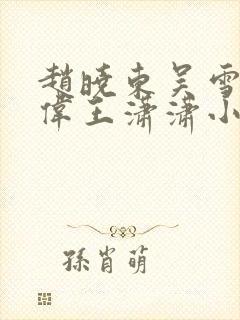 趙曉東吳雪
偉王瀟瀟小
孫肖萌